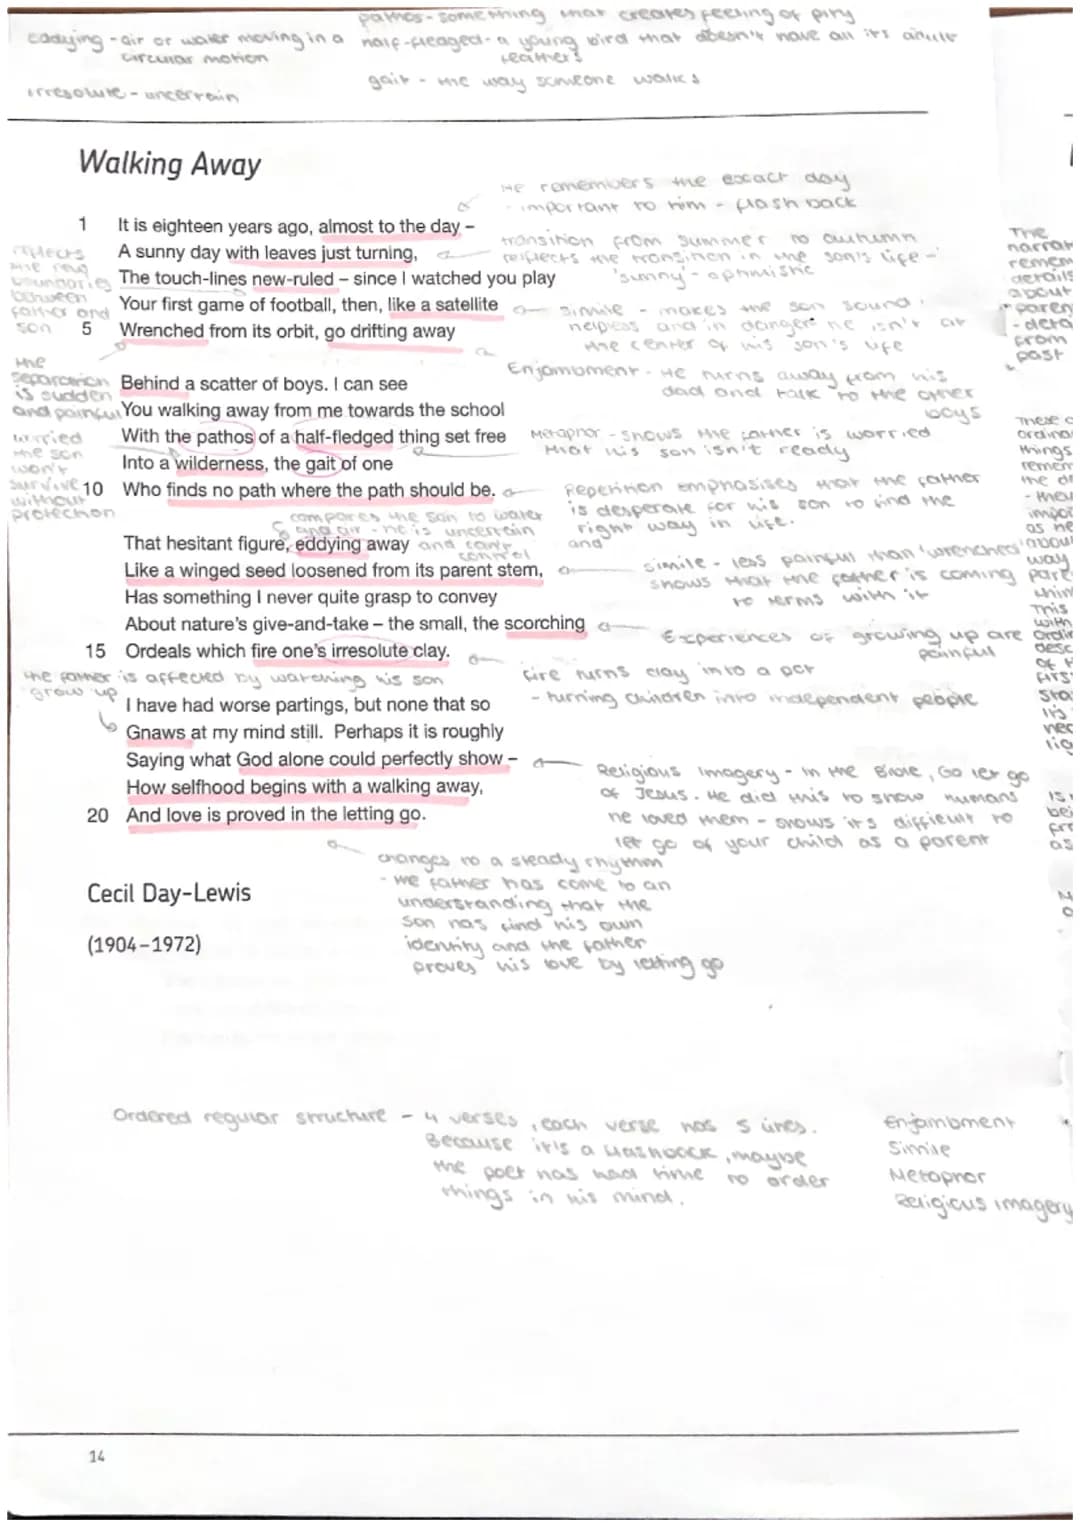 pathos - something that creates feeling of pity
eddying - air or water moving in a circular motion
half-fledged - a young bird that doesn't have all its adult feathers
gait - the way someone walks
irresolute - uncertain
Walking Away
He remembers the exact day
- important to him - flash back
1 It is eighteen years ago, almost to the day –
A sunny day with leaves just turning,
The touch-lines new-ruled – since I watched you play
Your first game of football, then, like a satellite
5 Wrenched from its orbit, go drifting away
transition from summer to autumn
reflects the transition in the son's life -
'sunny' - optimistic
reflects the new boundaries between father and son
simile - makes the son sound
helpless and in danger he isn't at
the center of his son's life
the separation is sudden and painful
Behind a scatter of boys. I can see
You walking away from me towards the school
With the pathos of a half-fledged thing set free
Into a wilderness, the gait of one
10 Who finds no path where the path should be.
Enjambment - He turns away from his
dad and talk to the other
boys
worried the son won't survive without protection
Metaphor - shows the father is worried
that his son isn't ready
Repetition emphasises that the father
is desperate for his son to find the
right way in life.
compares the son to water
and air - he is uncertain
and can't control
and
That hesitant figure, eddying away
Like a winged seed loosened from its parent stem,
Has something I never quite grasp to convey
About nature's give-and-take – the small, the scorching
15 Ordeals which fire one's irresolute clay.
simile - less painful than 'wrenched'
shows that the father is coming
to terms with it
Experiences of growing up are
painful
fire turns clay into a pot
- turning children into independent people
the father is affected by watching his son
grow up
I have had worse partings, but none that so
Gnaws at my mind still. Perhaps it is roughly
Saying what God alone could perfectly show –
How selfhood begins with a walking away,
20 And love is proved in the letting go.
Religious imagery - in the Bible, Go let go
of Jesus. He did this to show humans
he loved them - shows its difficult to
let go of your child as a parent
changes to a steady rhythm
- the father has come to an
understanding that the
son has find his own
identity and the father
proves his love by letting go
Cecil Day-Lewis
(1904–1972)
Ordered regular structure - 4 verses, each verse has 5 lines.
Because it's a flashback, maybe
the poet has had time to order
things in his mind.
Enjambment
Simile
Metaphor
Religious imagery
14